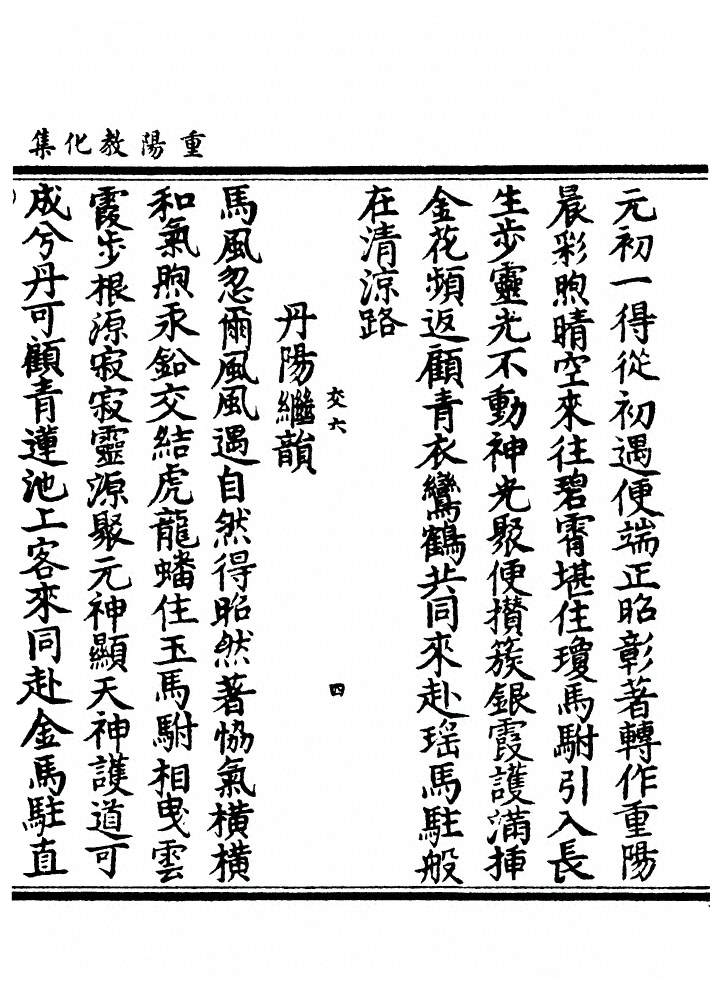 重陽教化集
元初一得從初遇便端正昭彰著轉作重陽
晨彩煦晴空來往碧霄堪住瓊馬駙引入長
生步靈光不動神光聚便攢簇銀霞護滿捶
金花頻返顧青衣鸞鶴共同來赴瑶馬駐般
在清涼路
交六
四
丹陽繼韻
馬風忽爾風風遇自然得昭然著恊氣橫橫
和氣煦汞鉛交結虎龍蟠住玉馬駙相曳雲
霞步根源寂寂靈源聚元神顯天神護道可
成兮丹可顧青蓮池上客來同赴金馬駐直